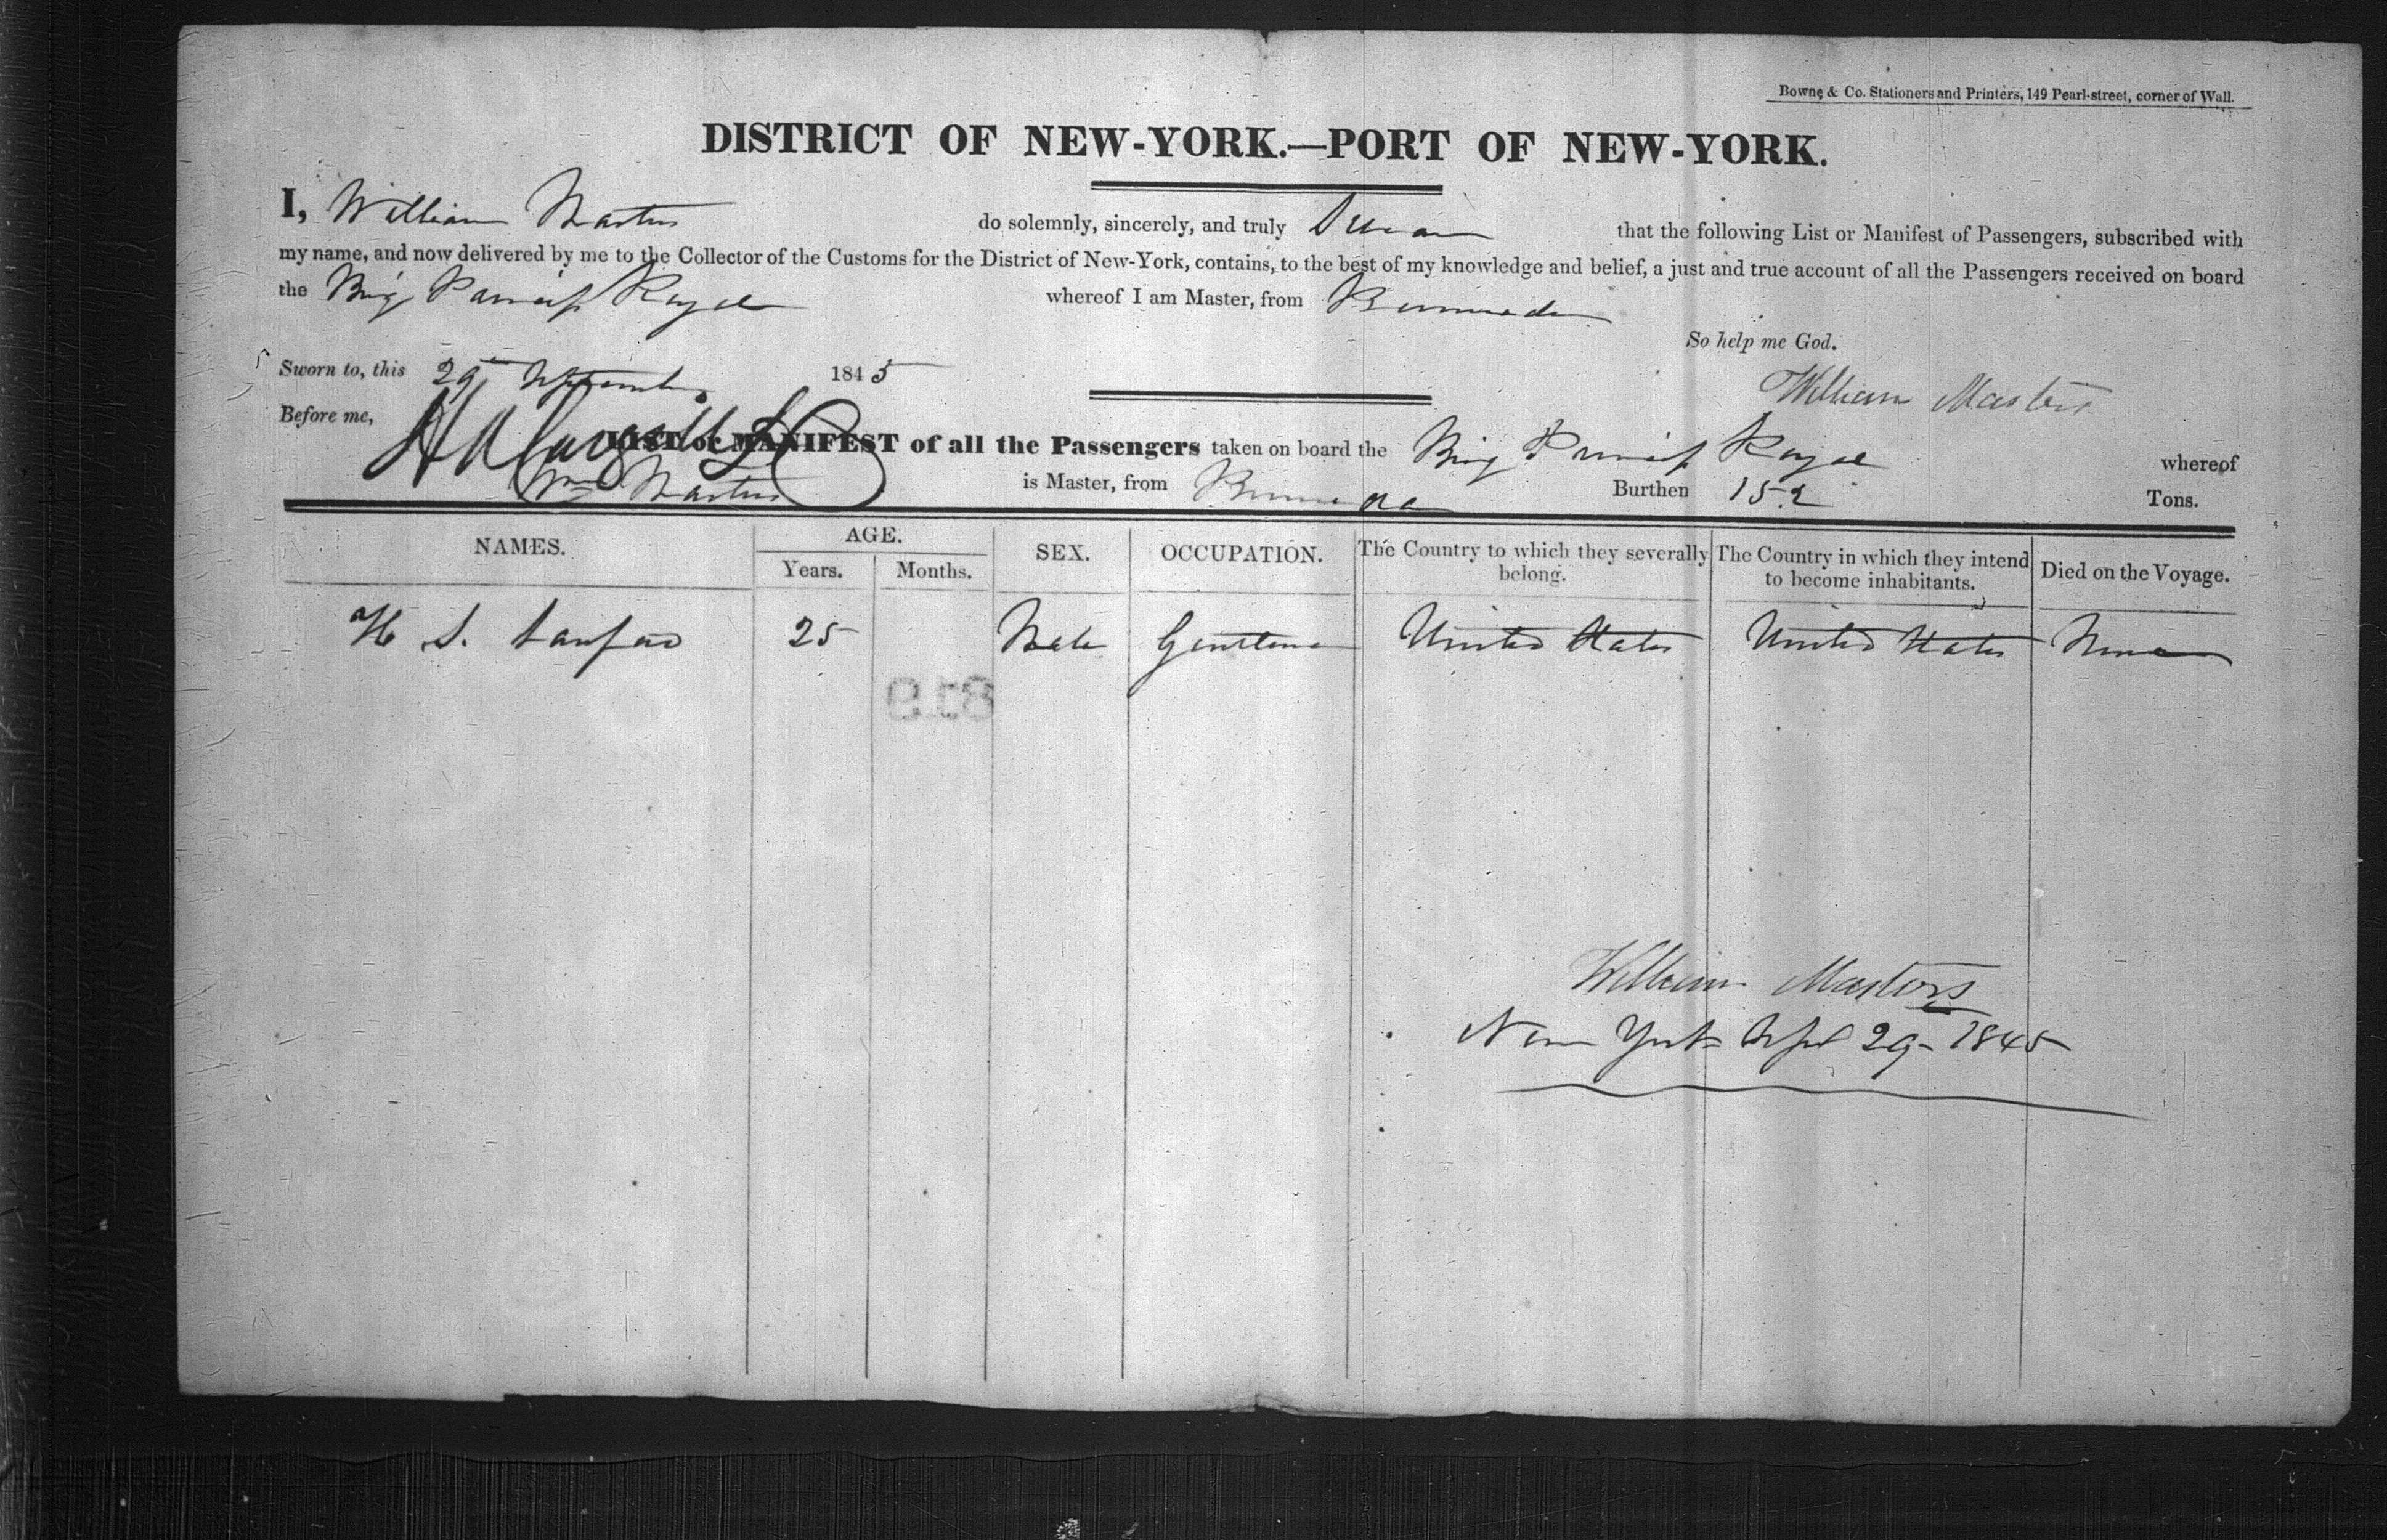 Bowne & Co. Stationers and Printers, 149 Pearl-street, corner of Wall.
DISTRICT OF NEW-YORK.—PORT OF NEW-YORK.
I, William Masters do solemnly, sincerely, and truly Swear that the following List or Manifest of Passengers, subscribed with
my name, and now delivered by me to the Collector of the Customs for the District of New-York, contains, to the best of my knowledge and belief, a just and true account of all the Passengers received on board
the Brig Princess Royal whereof I am Master, from Bermuda
So help me God.
Sworn to, this 29th September 1845
William Masters
Before me,
LIST or MANIFEST of all the Passengers taken on board the Brig Princess Royal whereof
Wm Masters is Master, from Bermuda Burthen 152 Tons.
NAMES. AGE. Years. Months. SEX. OCCUPATION. The Country to which they severally belong. The Country in which they intend to become inhabitants. Died on the Voyage.
H S. Sanford 25 Male Gentleman United States United States None
819
William Masters
New York Sept 29- 1845